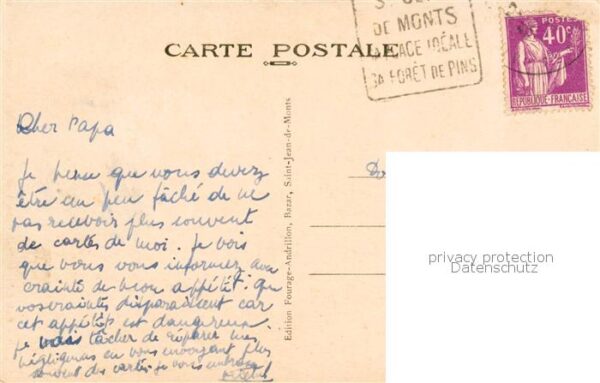 S
DE MONTS
PLAGE IDÉALE
SA FORÊT DE PINS
POSTES
40c
REPUBLIQUE-FRANÇAISE
CARTE POSTALE
Cher Papa
Je pense que vous devez
être un peu fâché de ne
pas recevoir plus souvent
de cartes de moi. Je vois
que vous vous informez avec
crainte de mon appétit. Que
vos craintes disparaissent car
cet appétit est dangereux
je vais tâcher de réparer mes
négligences en vous envoyant plus
souvent des cartes je vous embrasse
Edition Fourage-Andrillon, Bazar, Saint-Jean-de-Monts
privacy protection
Datenschutz